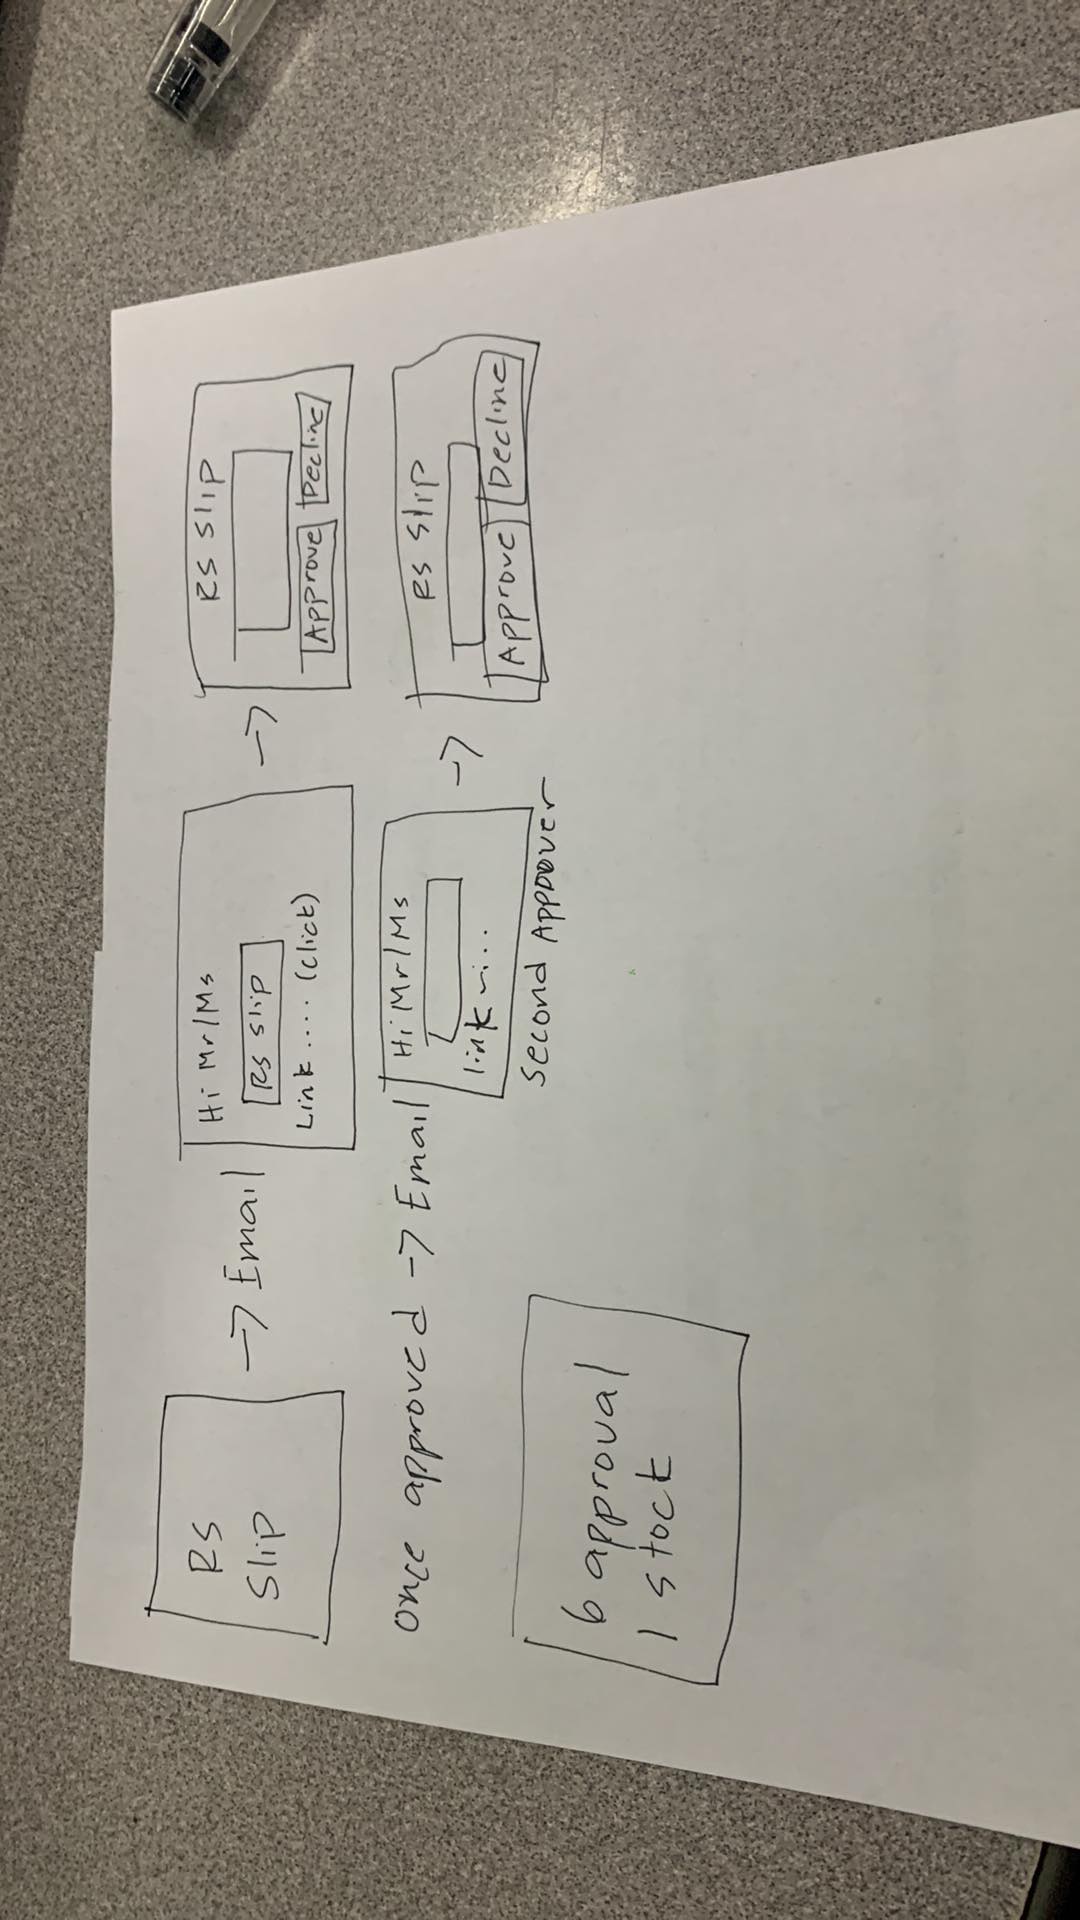 RS
Slip
-> Email
Hi Mr/Ms
RS slip
Link .... (click)
->
RS Slip
Approve
Decline
once approved -> Email
Hi Mr/Ms
link ....
second Approover
->
RS Slip
Approve
Decline
6 approval
1 stock